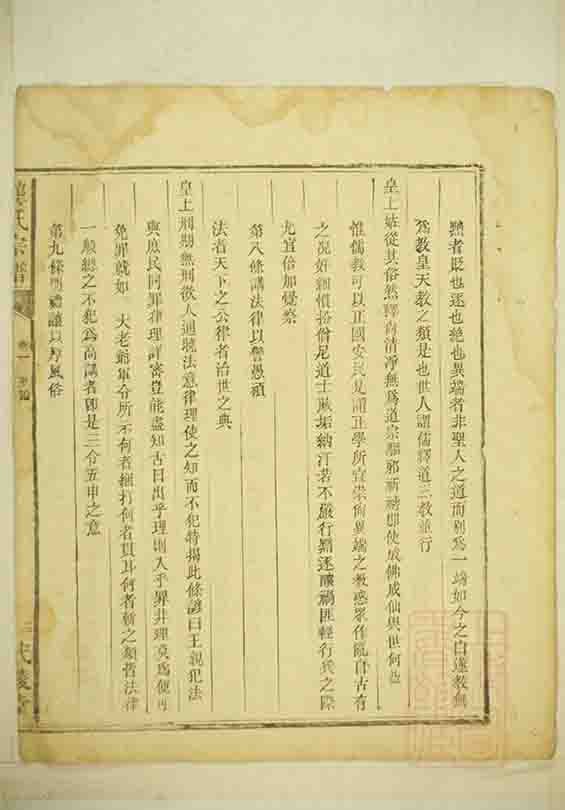 黜者貶也逐也絶也異端者非聖人之道而别為一端如今之白蓮教無
為教皇天教之類是也世人謂儒釋道三教並行
皇上姑從其俗然釋尚清淨無為道宗驅邪祈禱即使成佛成仙與世何益
惟儒教可以正國安民是謂正學所宜崇尚異端之教惑眾作亂自古有
之况奸細慣扮僧尼道士藏垢納汙若不嚴行黜逐釀禍匪輕行兵之際
尤宜倍加覺察
第八條講法律以警愚頑
法者天下之公律者治世之典
皇上刑期無刑欲人通曉法意律理使之知而不犯特揭此條諺曰王親犯法
與庶民同罪律理詳審豈能盡知古曰出乎理則入乎罪非理莫為便可
免罪就如 大老爺軍令所示何者綑打何者貫耳何者斬之類皆法律
一般總之不犯為高講者即是三令五申之意
第九條明禮讓以厚風俗
氏宗譜
卷一